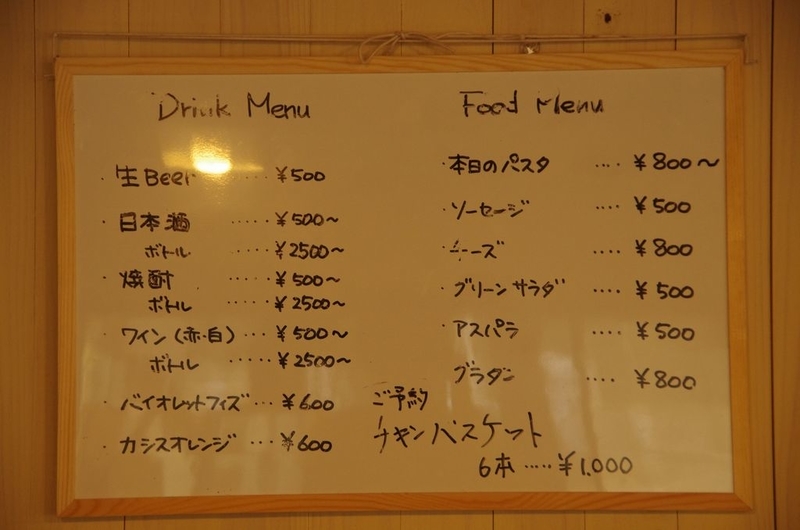 Drink Menu
・生Beer ..... ¥500
・日本酒 ..... ¥500～
ボトル ..... ¥2500～
・焼酎 ..... ¥500～
ボトル ..... ¥2500～
・ワイン（赤・白）... ¥500～
ボトル ..... ¥2500～
・バイオレットフィズ... ¥600
・カシスオレンジ ... ¥600
Food Menu
・本日のパスタ .... ¥800～
・ソーセージ .... ¥500
・チーズ .... ¥800
・グリーンサラダ .... ¥500
・アスパラ .... ¥500
グラタン .... ¥800
ご予約
チキンバスケット
6本 ..... ¥1,000